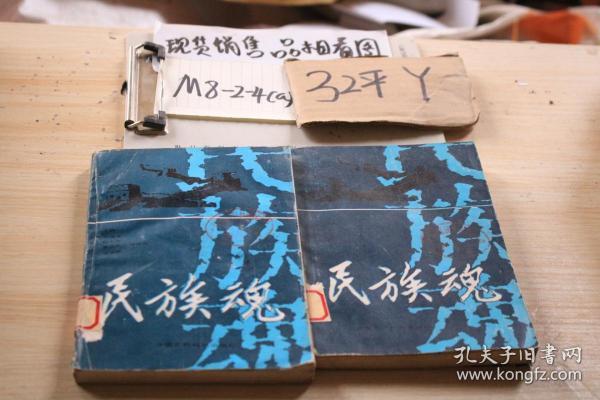 现货销售 品相看图
M8-2-4(a)
32平 Y
民族魂
民族魂
民族魂
民族魂
孔夫子旧书网
www.kongfz.com